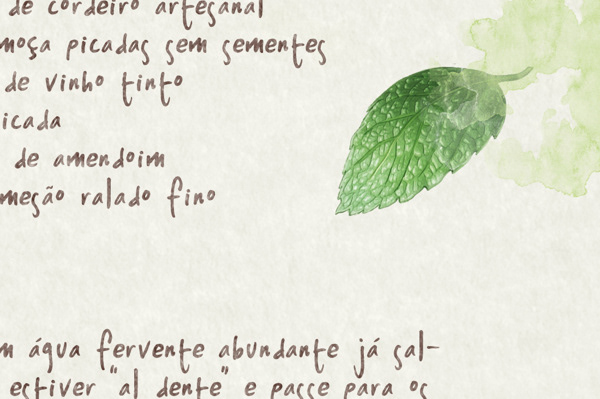 de cordeiro artesanal
moça picadas sem sementes
de vinho tinto
icada
de amendoim
mesão ralado fino
m água fervente abundante já sal-
estiver "al dente" e passe para os